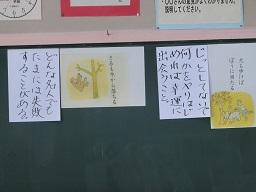 説明してください。
犬も歩けば
棒に当たる
じっとしてないで
何かをやりはじ
めれば幸運に
出会うこと。
さるも木から落ちる
どんな名人でも
たまには失敗
することがある。